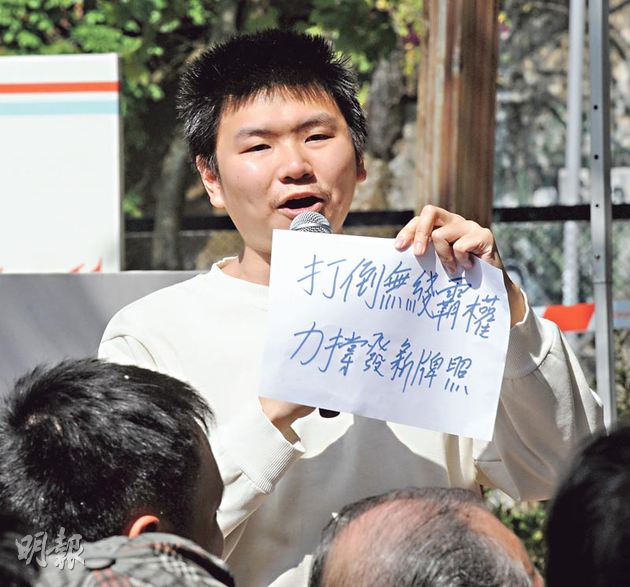 打倒無綫霸權
力撐發新牌照
明報